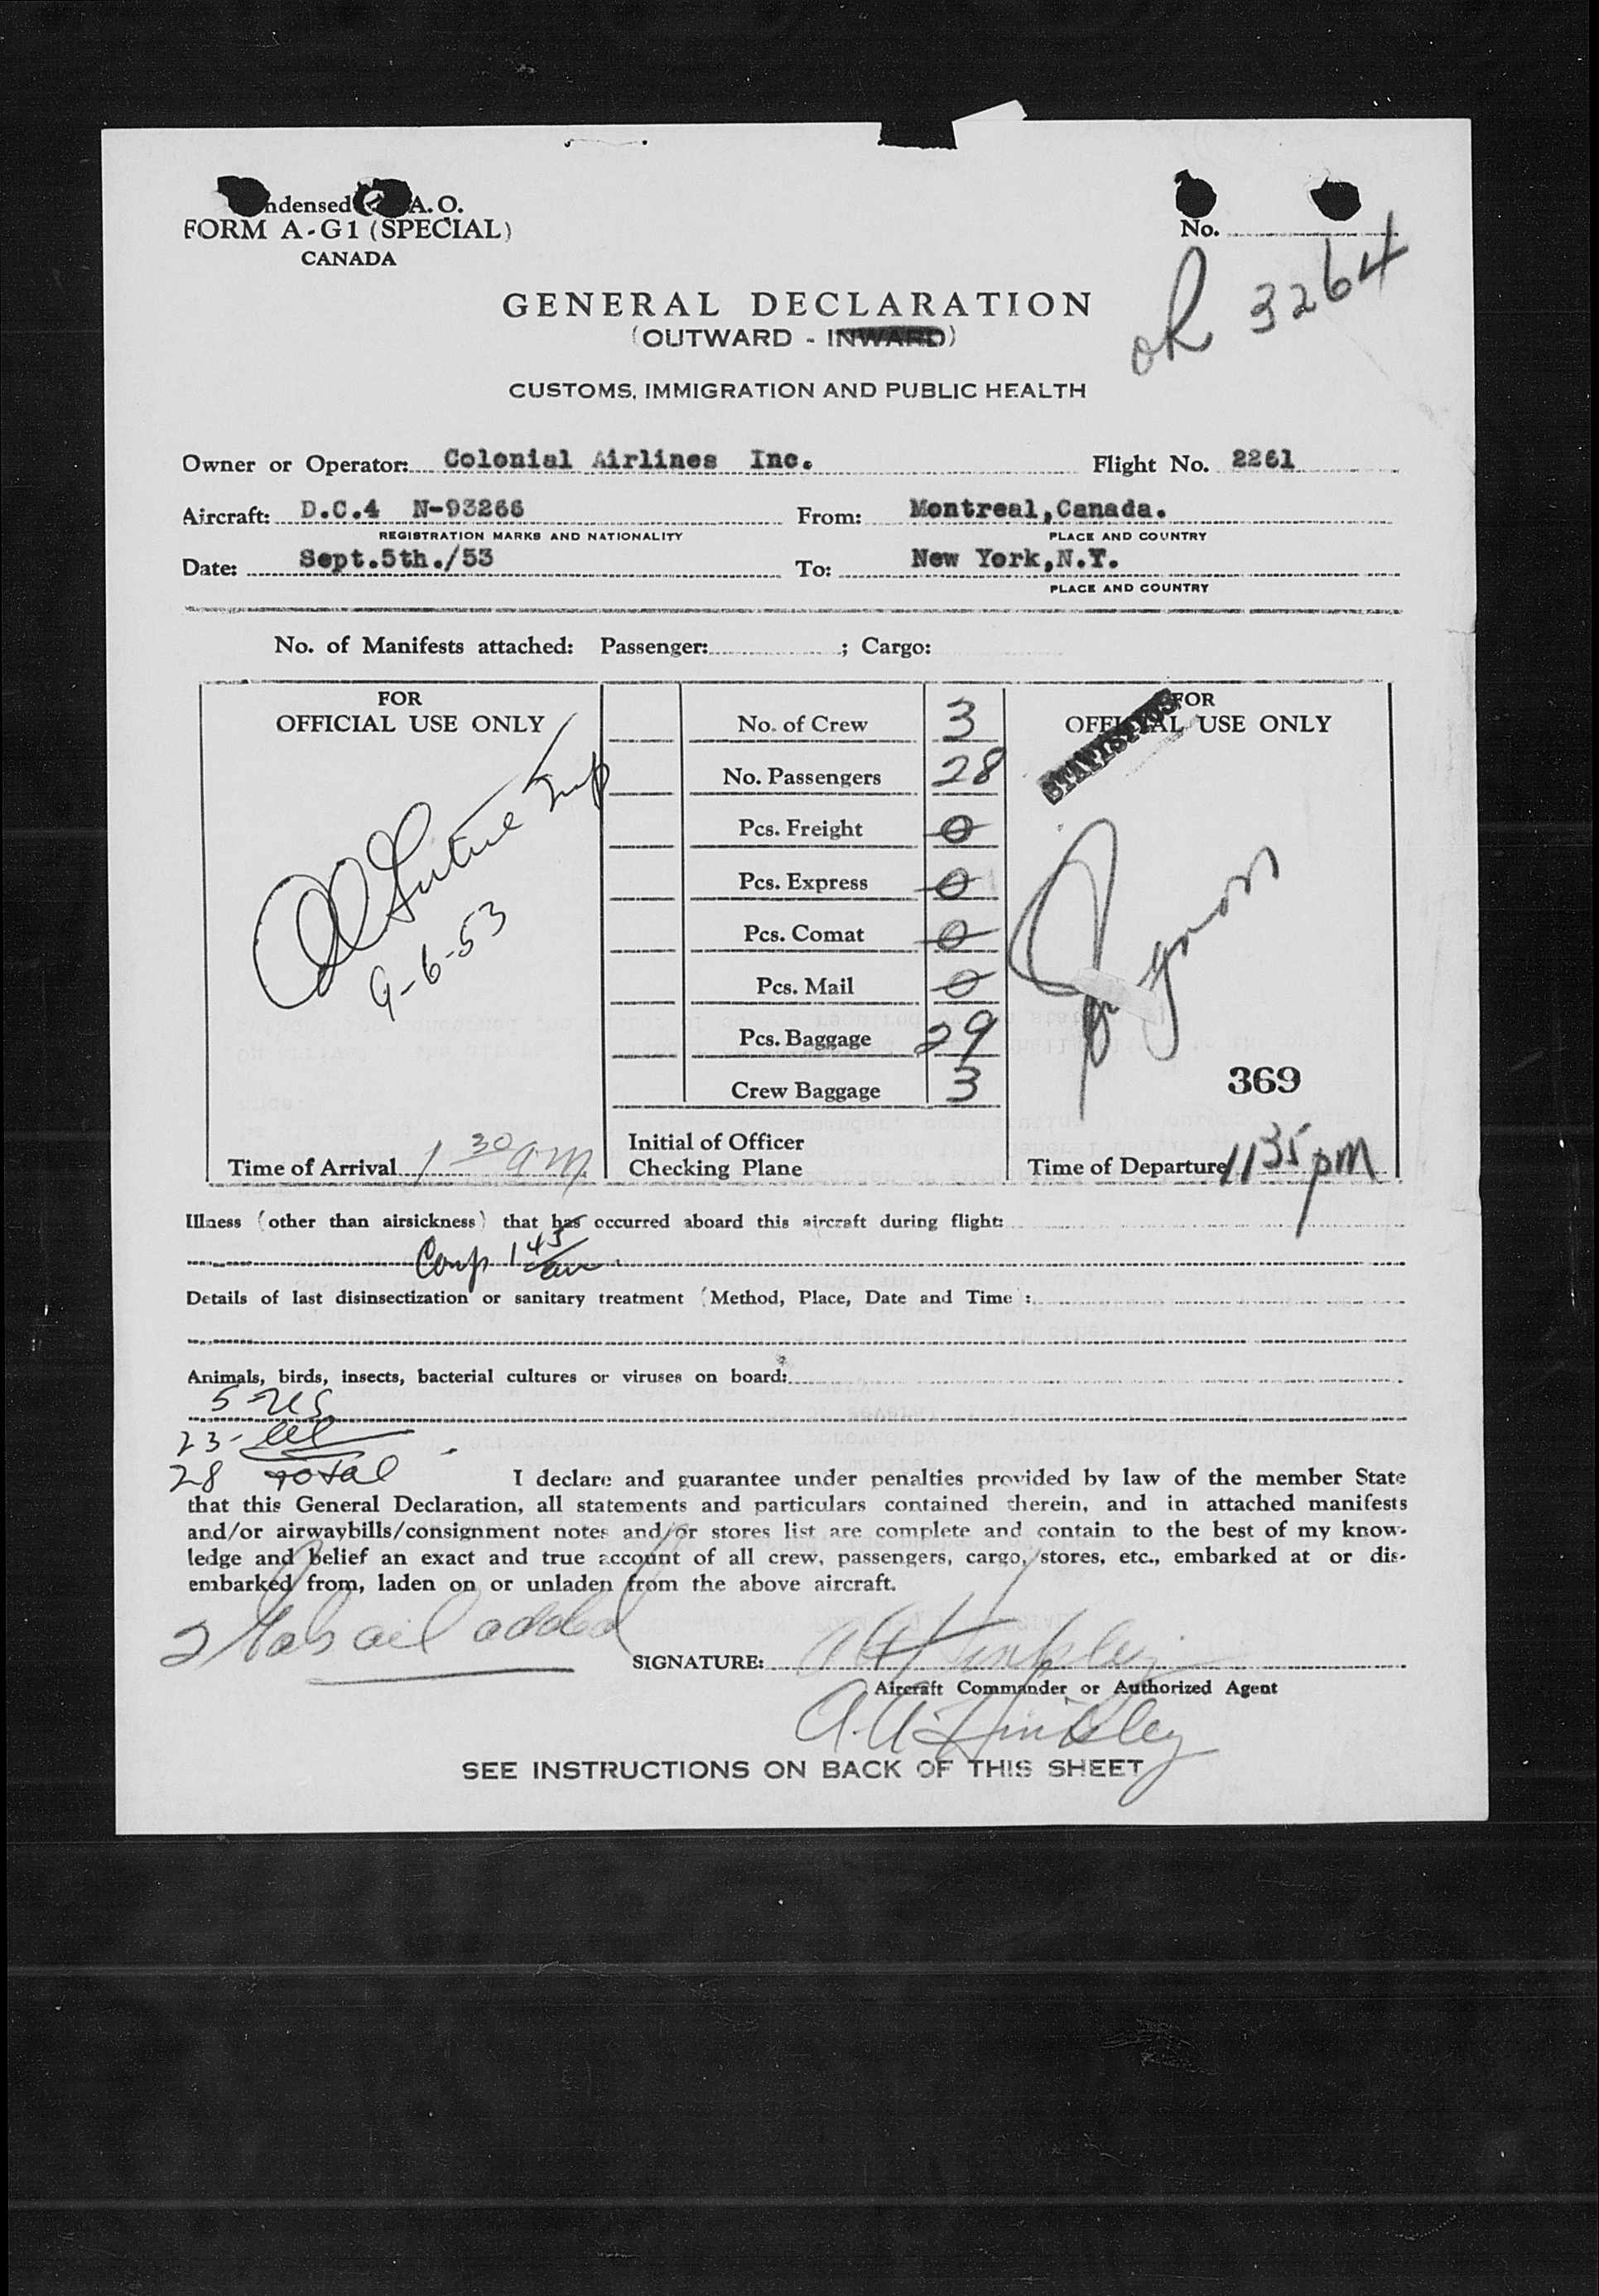 ndensed A.O.
FORM A-G1 (SPECIAL)
CANADA
No.
OK 3264
GENERAL DECLARATION
(OUTWARD - INWARD)
CUSTOMS, IMMIGRATION AND PUBLIC HEALTH
Owner or Operator: Colonial Airlines Inc. Flight No. 2261
Aircraft: D.C.4 N-93266 From: Montreal, Canada.
REGISTRATION MARKS AND NATIONALITY PLACE AND COUNTRY
Date: Sept.5th./53 To: New York,N.Y.
PLACE AND COUNTRY
No. of Manifests attached: Passenger: ; Cargo:
FOR
OFFICIAL USE ONLY
Insp
9-6-53
Time of Arrival 1 30 am
No. of Crew 3
No. Passengers 28
Pcs. Freight 0
Pcs. Express 0
Pcs. Comat 0
Pcs. Mail 0
Pcs. Baggage 29
Crew Baggage 3
Initial of Officer
Checking Plane
FOR
OFFICIAL USE ONLY
STATISTICS
369
Time of Departure 11 35 pm
Illness (other than airsickness) that has occurred aboard this aircraft during flight:
Comp 1 45 am
Details of last disinsectization or sanitary treatment (Method, Place, Date and Time :
Animals, birds, insects, bacterial cultures or viruses on board:
5-US
23-
28 total
I declare and guarantee under penalties provided by law of the member State
that this General Declaration, all statements and particulars contained therein, and in attached manifests
and/or airwaybills/consignment notes and/or stores list are complete and contain to the best of my know-
ledge and belief an exact and true account of all crew, passengers, cargo, stores, etc., embarked at or dis-
embarked from, laden on or unladen from the above aircraft.
2 added
SIGNATURE: A A Hinkley
Aircraft Commander or Authorized Agent
A.A. Hinkley
SEE INSTRUCTIONS ON BACK OF THIS SHEET